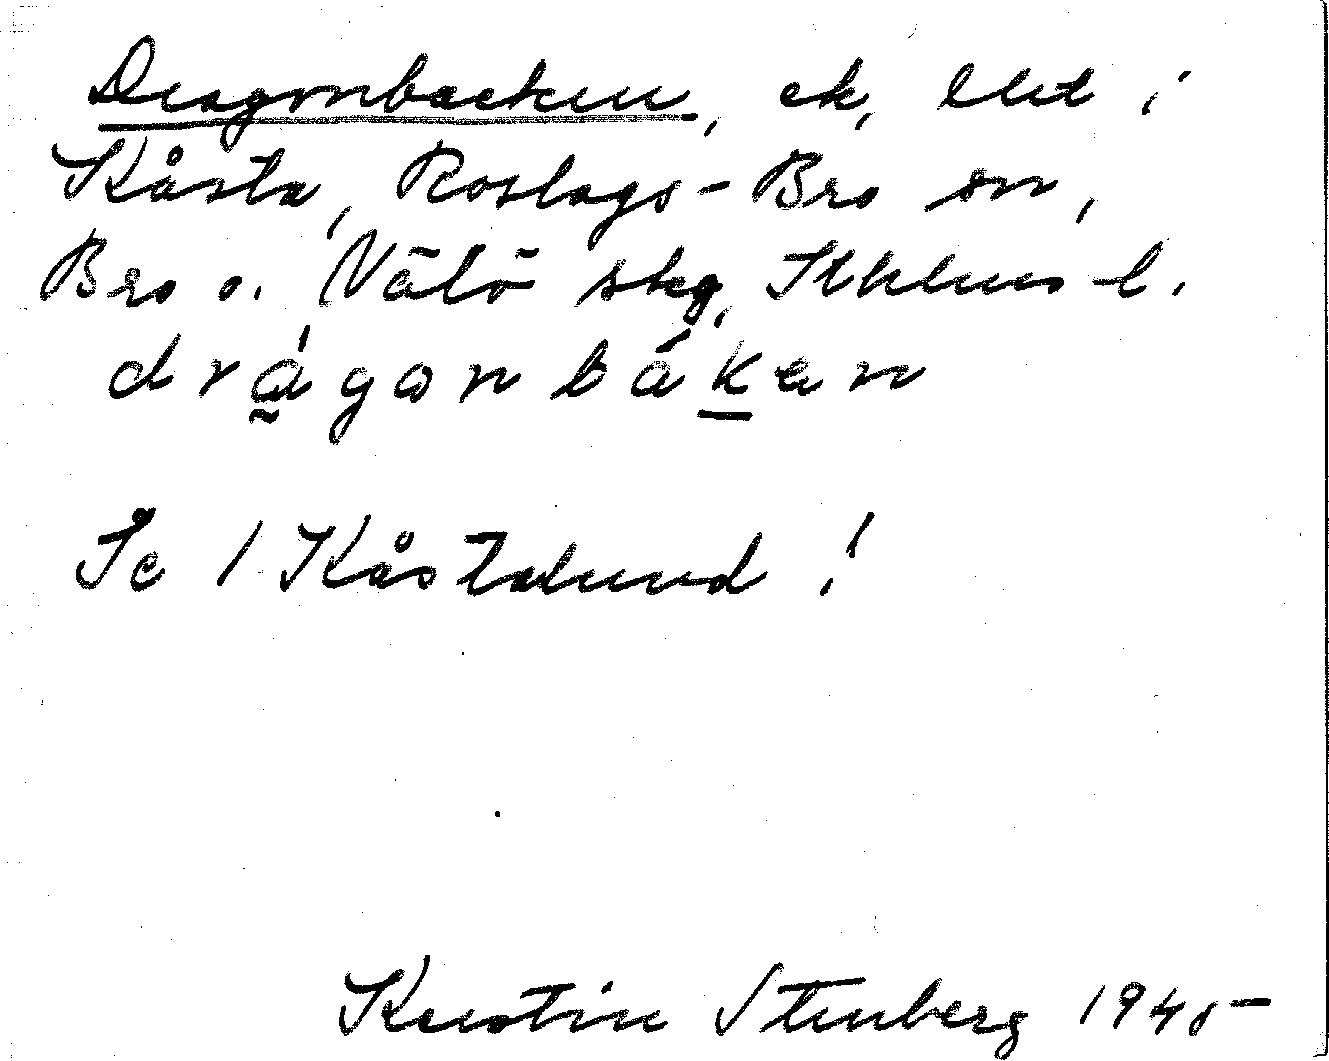 Dragonbacken, ek, litet i
Kåsta, Roslags-Bro sn,
Bro o. Vätö skg, Sthlms l.
drágonbáken
Se 1 Kåstalund!
Kerstin Stenberg 1945